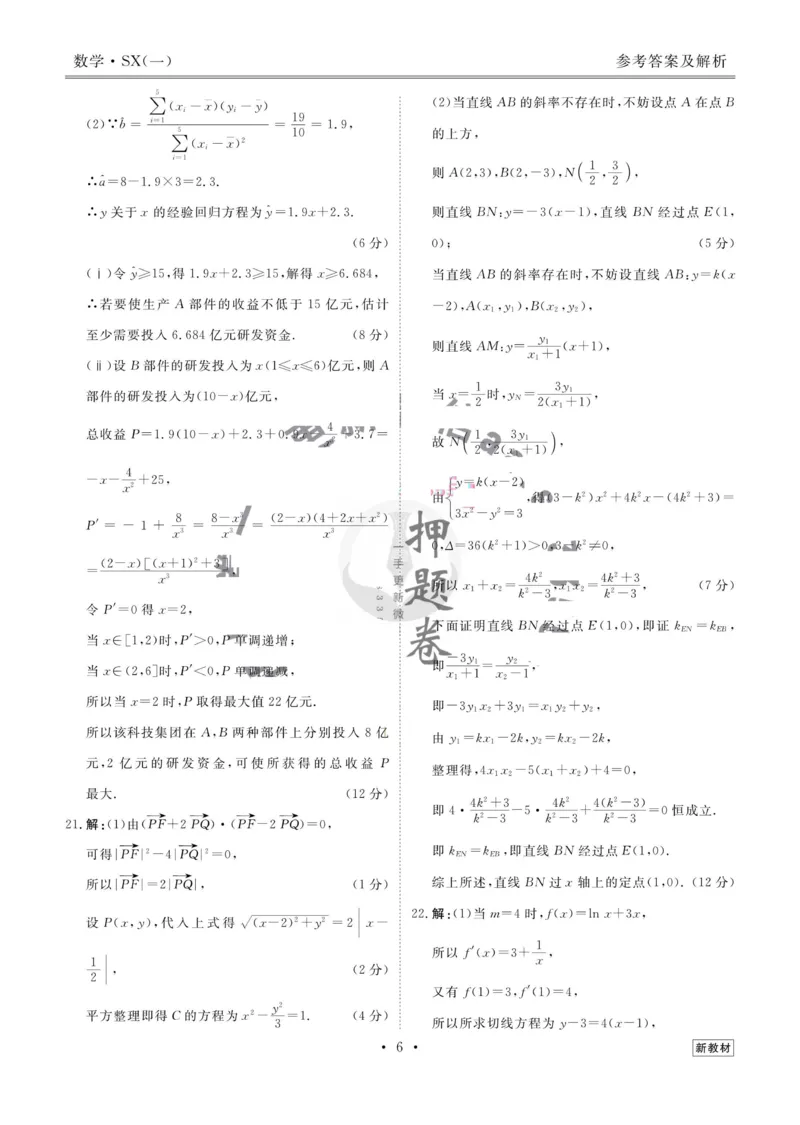 数学·SX(一)
参考答案及解析
(2)∵b̂ = ∑(i=1→5)(xᵢ−x̄)(yᵢ−ȳ) / ∑(i=1→5)(xᵢ−x̄)² = 19/10 = 1.9,
∴â=8−1.9×3=2.3.
∴y关于x的经验回归方程为ŷ=1.9x+2.3.
(6分)
(ⅰ)令ŷ≥15,得1.9x+2.3≥15,解得x≥6.684,
∴若要使生产A部件的收益不低于15亿元,估计
至少需要投入6.684亿元研发资金. (8分)
(ⅱ)设B部件的研发投入为x(1≤x≤6)亿元,则A
部件的研发投入为(10−x)亿元,
总收益P=1.9(10−x)+2.3+0.9x−4/x²+3.7=
−x−4/x²+25,
P′=−1+8/x³=(8−x³)/x³=(2−x)(4+2x+x²)/x³
=(2−x)[(x+1)²+3]/x³,
令P′=0得x=2,
当x∈[1,2)时,P′>0,P单调递增;
当x∈(2,6]时,P′<0,P单调递减,
所以当x=2时,P取得最大值22亿元.
所以该科技集团在A,B两种部件上分别投入8亿
元,2亿元的研发资金,可使所获得的总收益P
最大. (12分)
21.解:(1)由(PF→+2PQ→)·(PF→−2PQ→)=0,
可得|PF→|²−4|PQ→|²=0,
所以|PF→|=2|PQ→|, (1分)
设P(x,y),代入上式得√((x−2)²+y²)=2|x−
1/2|, (2分)
平方整理即得C的方程为x²−y²/3=1. (4分)
(2)当直线AB的斜率不存在时,不妨设点A在点B
的上方,
则A(2,3),B(2,−3),N(1/2,3/2),
则直线BN:y=−3(x−1),直线BN经过点E(1,
0); (5分)
当直线AB的斜率存在时,不妨设直线AB:y=k(x
−2),A(x₁,y₁),B(x₂,y₂),
则直线AM:y=y₁/(x₁+1)(x+1),
当x=1/2时,y_N=3y₁/(2(x₁+1)),
故N(1/2,3y₁/(2(x₁+1))),
由{y=k(x−2) 3x²−y²=3,得(3−k²)x²+4k²x−(4k²+3)=
0,Δ=36(k²+1)>0,3−k²≠0,
所以x₁+x₂=4k²/(k²−3),x₁x₂=(4k²+3)/(k²−3), (7分)
下面证明直线BN经过点E(1,0),即证k_EN=k_EB,
即−3y₁/(x₁+1)=y₂/(x₂−1),
即−3y₁x₂+3y₁=x₁y₂+y₂,
由y₁=kx₁−2k,y₂=kx₂−2k,
整理得,4x₁x₂−5(x₁+x₂)+4=0,
即4·(4k²+3)/(k²−3)−5·4k²/(k²−3)+4(k²−3)/(k²−3)=0恒成立.
即k_EN=k_EB,即直线BN经过点E(1,0).
综上所述,直线BN过x轴上的定点(1,0). (12分)
22.解:(1)当m=4时,f(x)=ln x+3x,
所以f′(x)=3+1/x,
又有f(1)=3,f′(1)=4,
所以所求切线方程为y−3=4(x−1),
押题卷
一手更新微
· 6 ·
新教材